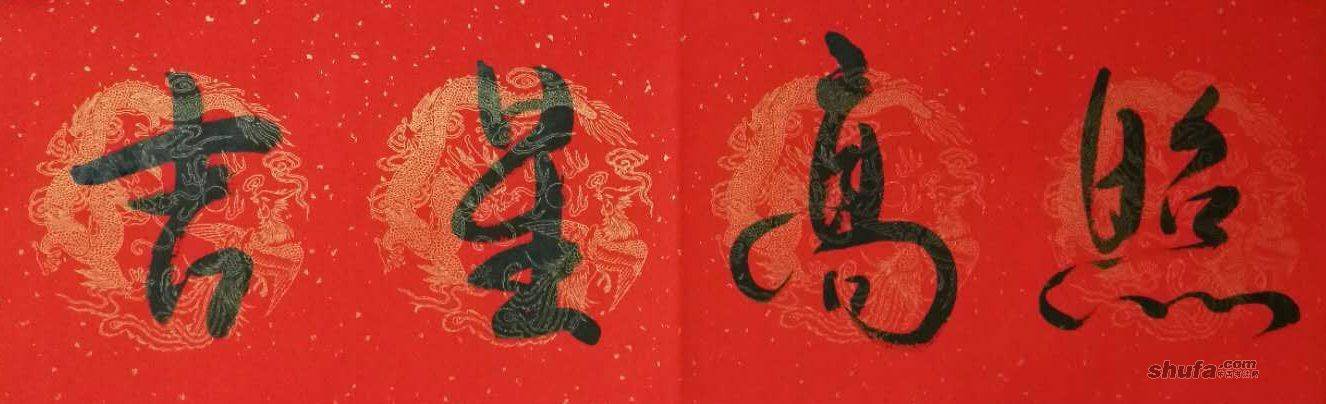 吉星高照
shufa.com